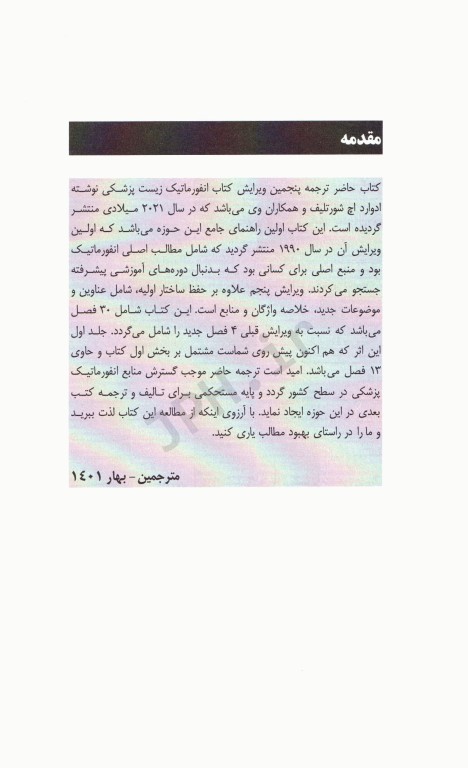 مقدمه
کتاب حاضر ترجمه پنجمین ویرایش کتاب انفورماتیک زیست پزشکی نوشته
ادوارد اچ شورتلیف و همکاران وی می‌باشد که در سال ۲۰۲۱ میلادی منتشر
گردیده است. این کتاب اولین راهنمای جامع این حوزه می‌باشد که اولین
ویرایش آن در سال ۱۹۹۰ منتشر گردید که شامل مطالب اصلی انفورماتیک
بود و منبع اصلی برای کسانی بود که بدنبال دوره‌های آموزشی پیشرفته
جستجو می‌کردند. ویرایش پنجم علاوه بر حفظ ساختار اولیه، شامل عناوین و
موضوعات جدید، خلاصه واژگان و منابع است. این کتاب شامل ۳۰ فصل
می‌باشد که نسبت به ویرایش قبلی ۴ فصل جدید را شامل می‌گردد. جلد اول
این اثر که هم اکنون پیش روی شماست مشتمل بر بخش اول کتاب و حاوی
۱۳ فصل می‌باشد. امید است ترجمه حاضر موجب گسترش منابع انفورماتیک
پزشکی در سطح کشور گردد و پایه مستحکمی برای تالیف و ترجمه کتب
بعدی در این حوزه ایجاد نماید. با آرزوی اینکه از مطالعه این کتاب لذت ببرید
و ما را در راستای بهبود مطالب یاری کنید.
مترجمین - بهار ۱۴۰۱